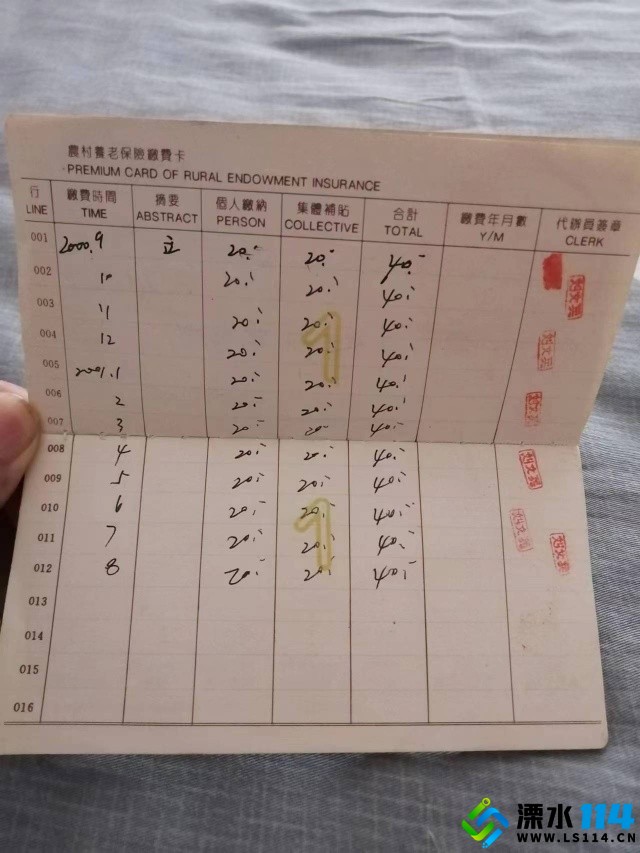 農村養老保險繳費卡
PREMIUM CARD OF RURAL ENDOWMENT INSURANCE
行 繳費時間 摘要 個人繳納 集體補貼 合計 繳費年月數 代辦員簽章
LINE TIME ABSTRACT PERSON COLLECTIVE TOTAL Y/M CLERK
001 2000.9 立 20.- 20.- 40.-
002 10 20.- 20.- 40.-
003 11 20.- 20.- 40.-
004 12 20.- 20.- 40.-
005 2001.1 20.- 20.- 40.-
006 2 20.- 20.- 40.-
007 3 20.- 20.- 40.-
008 4 20.- 20.- 40.-
009 5 20.- 20.- 40.-
010 6 20.- 20.- 40.-
011 7 20.- 20.- 40.-
012 8 20.- 20.- 40.-
013
014
015
016
1
1
溧水114
WWW.LS114.CN